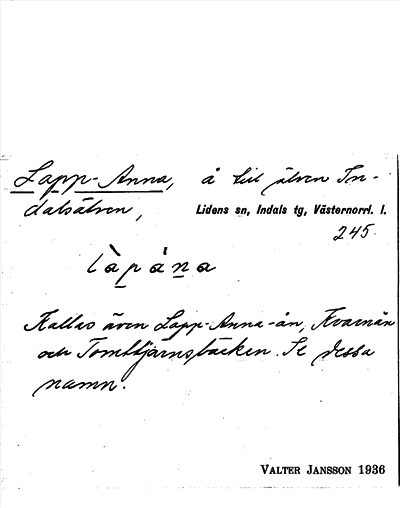 Lapp-Anna, å till älven In-
dalsälven, Lidens sn, Indals tg, Västernorrl. l.
245.
là̀pána
Kallas även Lapp-Anna-ån, Kvarnån
och Tomttjärnsbäcken. Se dessa
namn.
VALTER JANSSON 1936